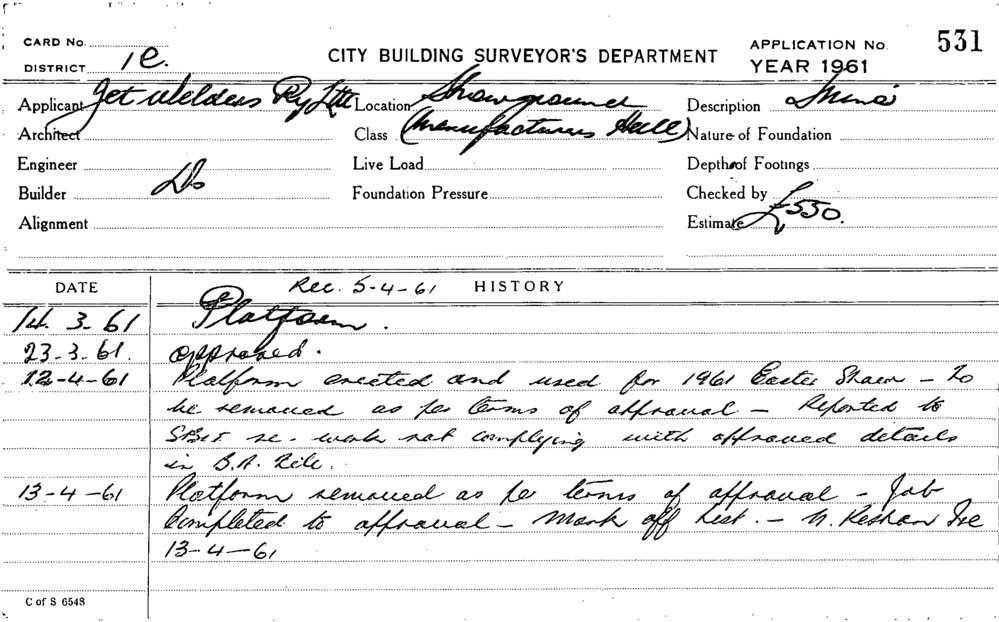 CARD No.
DISTRICT 1e.
CITY BUILDING SURVEYOR'S DEPARTMENT
APPLICATION No. 531
YEAR 1961
Applicant Jet Welders Pty Ltd Location Showground Description
Architect Class (Manufacturers Hall) Nature of Foundation
Engineer Live Load Depth of Footings
Builder Do Foundation Pressure Checked by
Alignment Estimate £550.
DATE Rec. 5-4-61 HISTORY
14. 3. 61 Platform.
23-3-61. approved.
12-4-61 Platform erected and used for 1961 Easter Show - To
be removed as per terms of approval - Reported to
re. work not complying with approved details
in B.A. File.
13-4-61 Platform removed as per terms of approval - Job
Completed to approval - Mark off List. - N.
13-4-61
C of S 6548